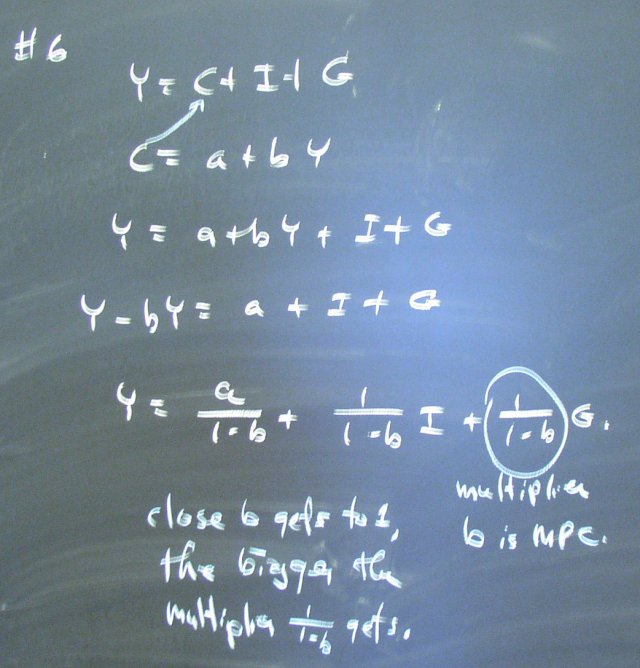 #6
Y = C + I + G
C = a + b Y
Y = a + b Y + I + G
Y - b Y = a + I + G
Y = a/(1-b) + 1/(1-b) I + 1/(1-b) G.
multiplier
b is MPC.
close b gets to 1,
the bigger the
multiplier 1/(1-b) gets.